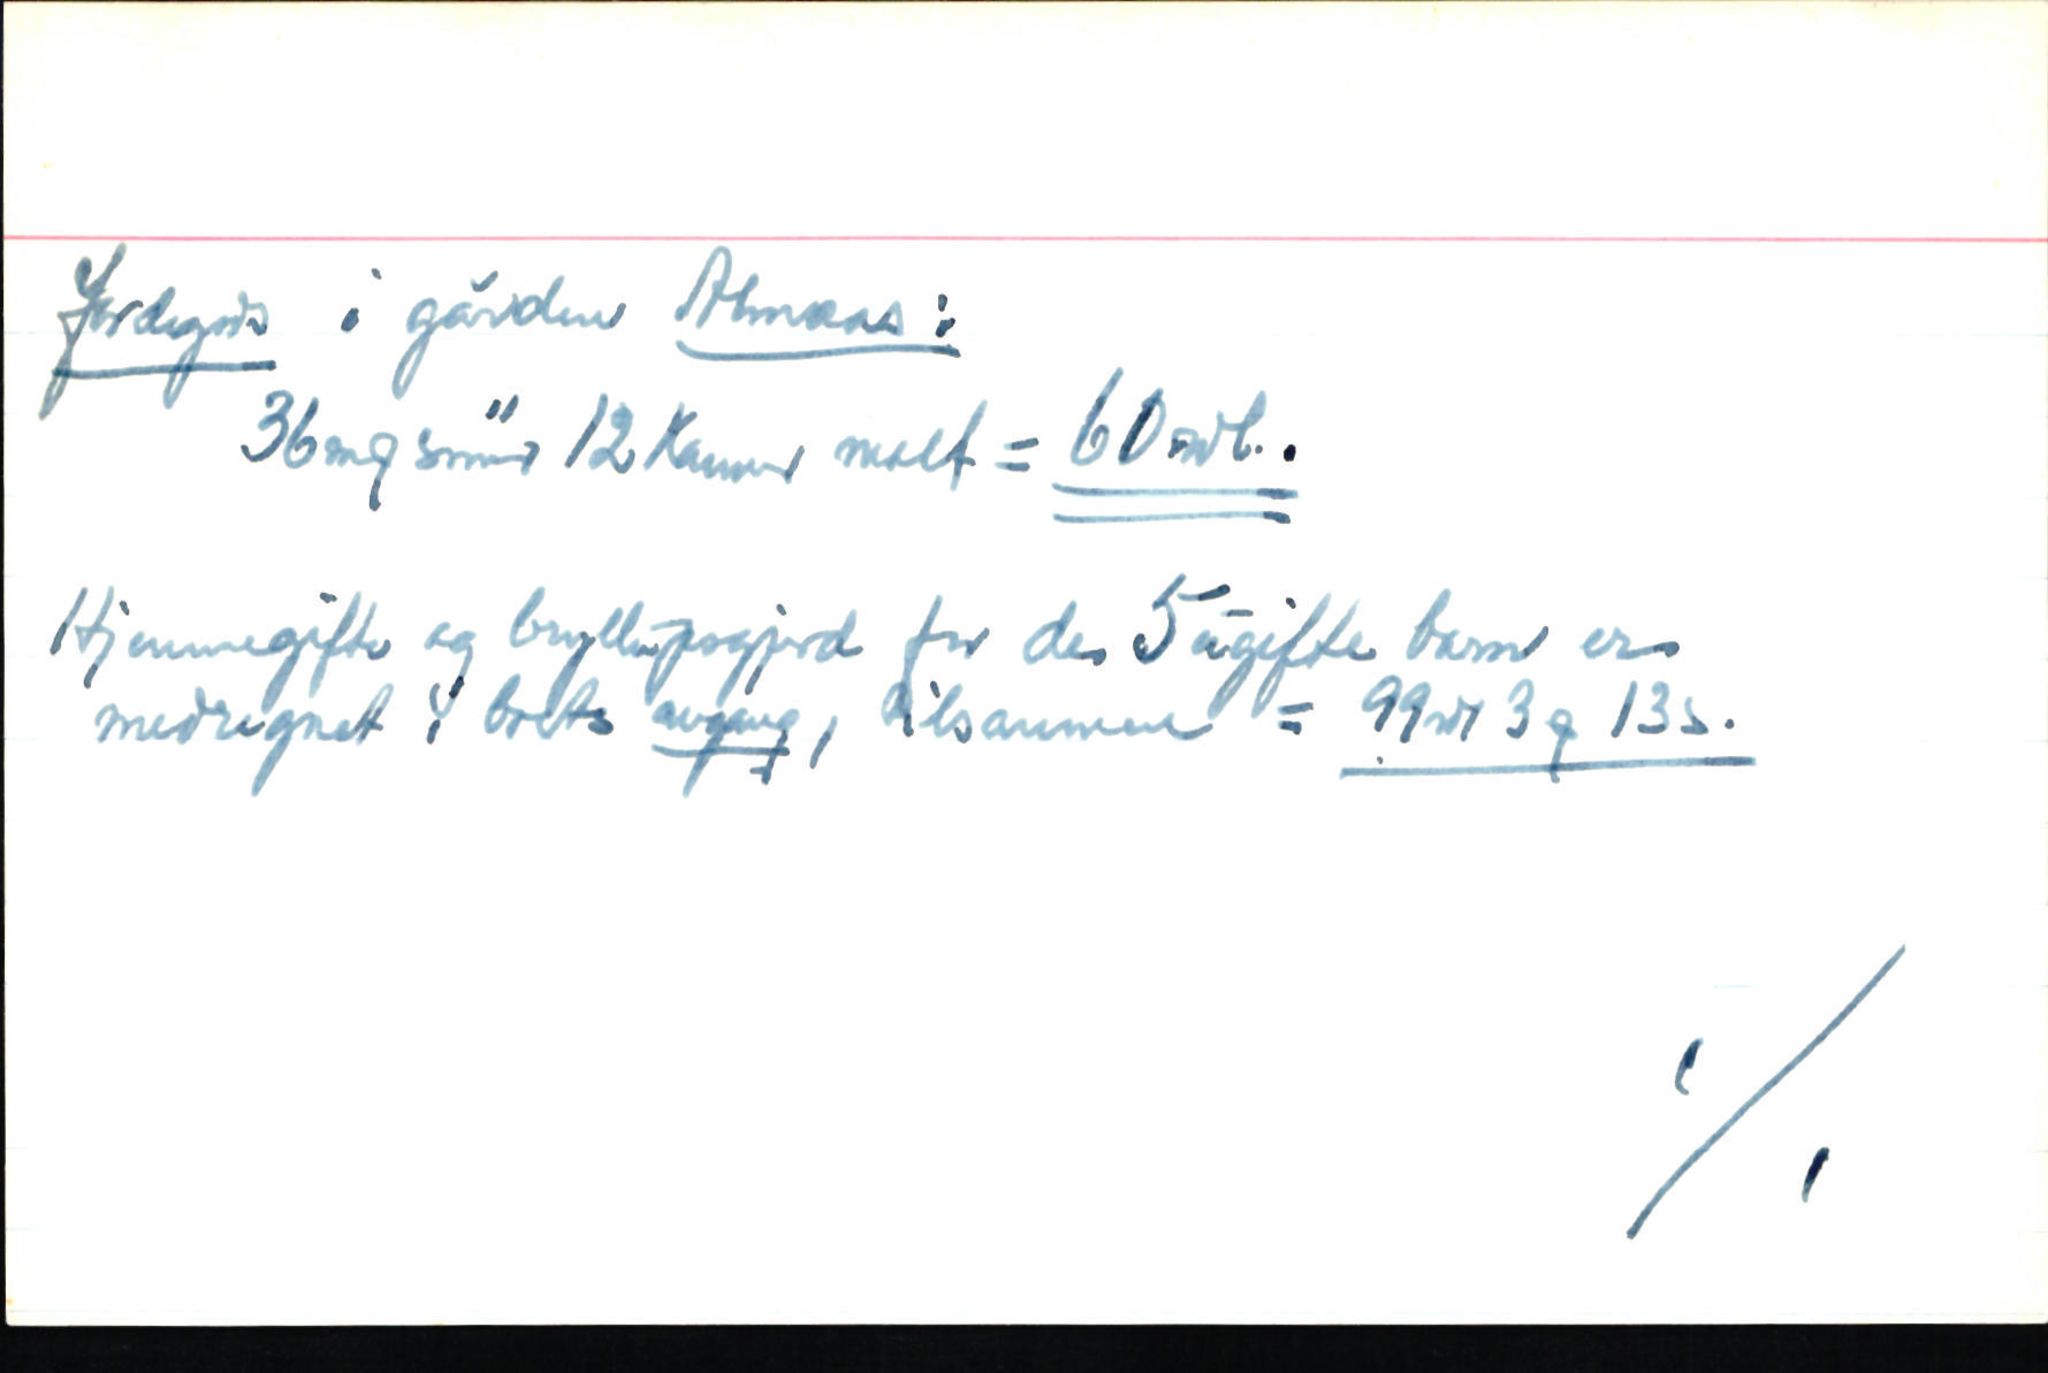 Jordegods i gården Almaas:
36 mg smör 12 Kanner malt = 60 rdl.
Hjemmegifte og bryllupsgjerd for de 5 ugifte barn er
medregnet i boets avgang, tilsammen = 99 rd 3 q 13 s.